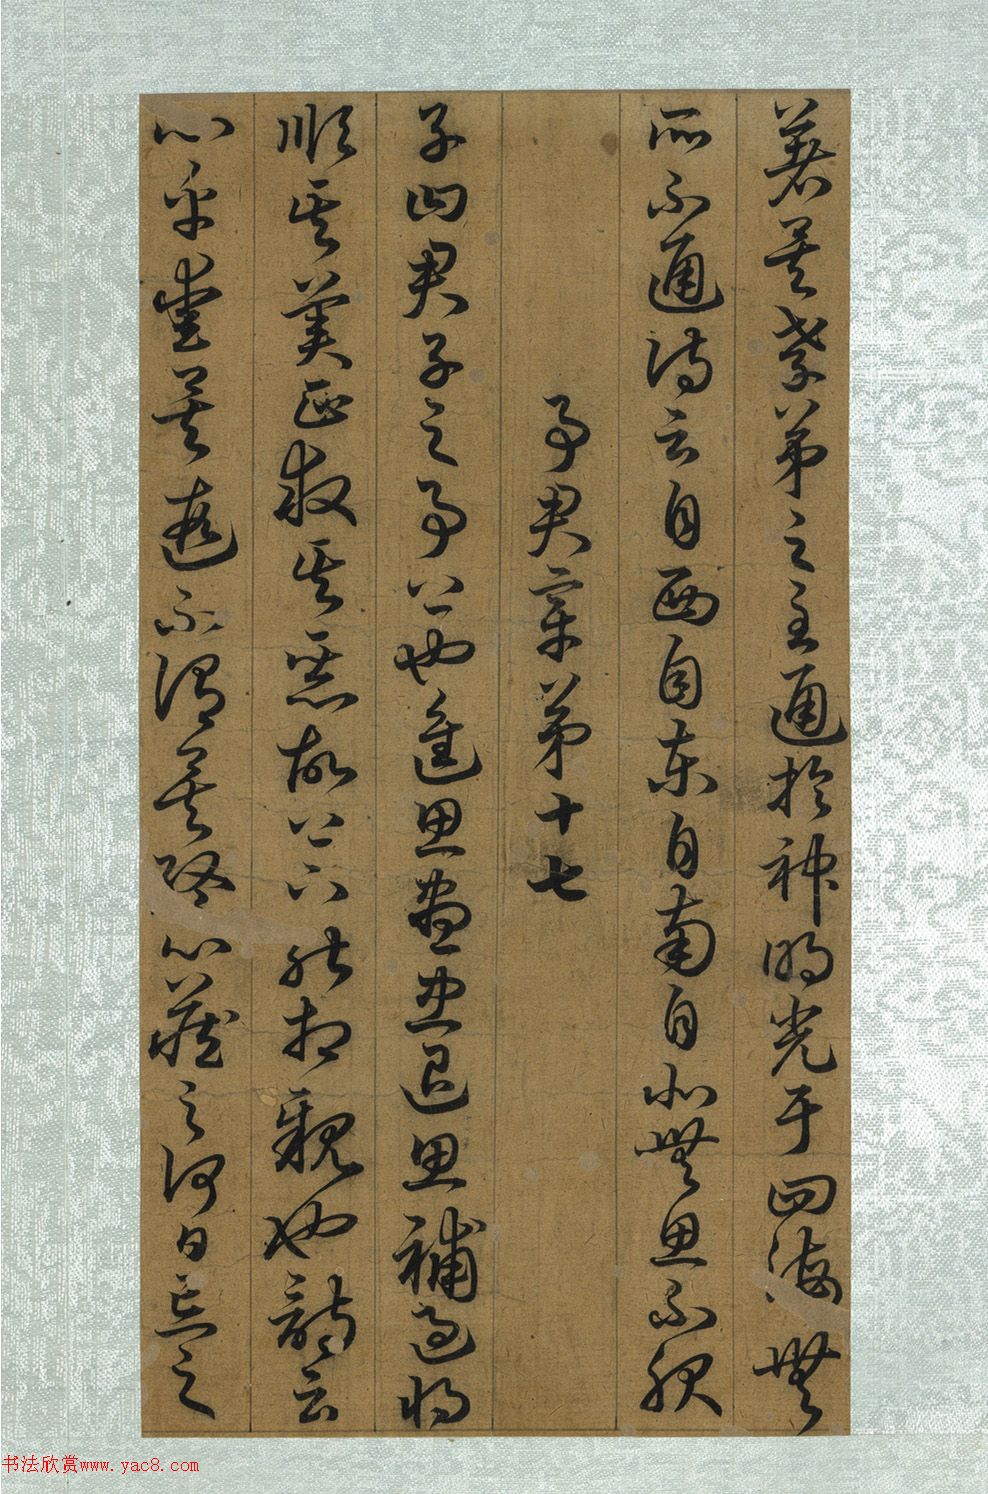 著矣孝弟之至通於神明光于四海無
所不通詩云自西自東自南自北無思不服
事君章第十七
子曰君子之事上也進思盡忠退思補過將
順其美匡救其惡故上下能相親也詩云
心乎愛矣遐不謂矣心藏之何日忘之
书法欣赏www.yac8.com